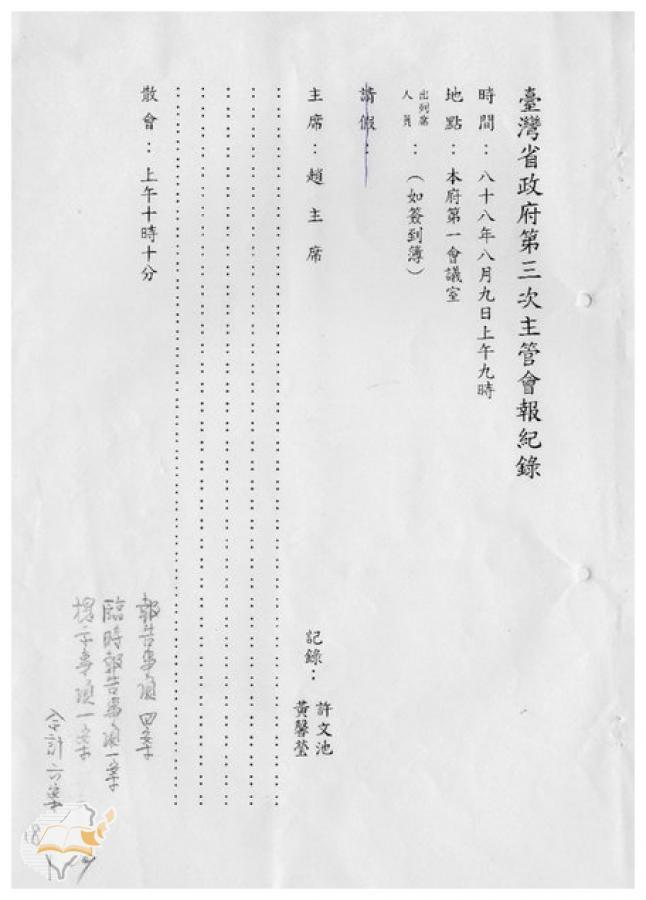 臺灣省政府第三次主管會報紀錄
時間：八十八年八月九日上午九時
地點：本府第一會議室
出列席人員：（如簽到簿）
請假：
主席：趙主席
記錄：許文池
黃馨瑩
散會：上午十時十分
報告事項四案
臨時報告事項一案
提示事項一案
合計六案